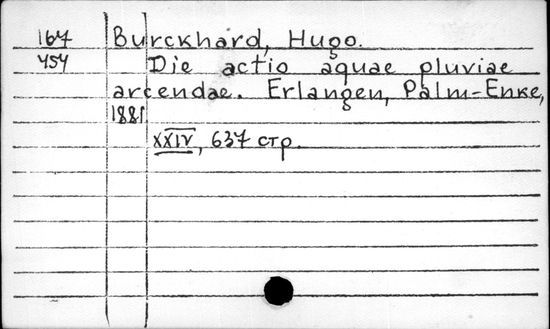 167 Burckhard, Hugo.
454 Die actio aquae pluviae
arcendae. Erlangen, Palm-Enke,
1881
XXIV, 637 стр.